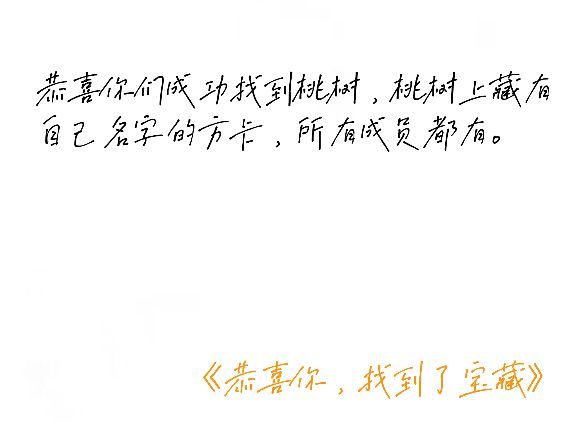 恭喜你们成功找到桃树，桃树上藏有
自己名字的方卡，所有成员都有。
《恭喜你，找到了宝藏》